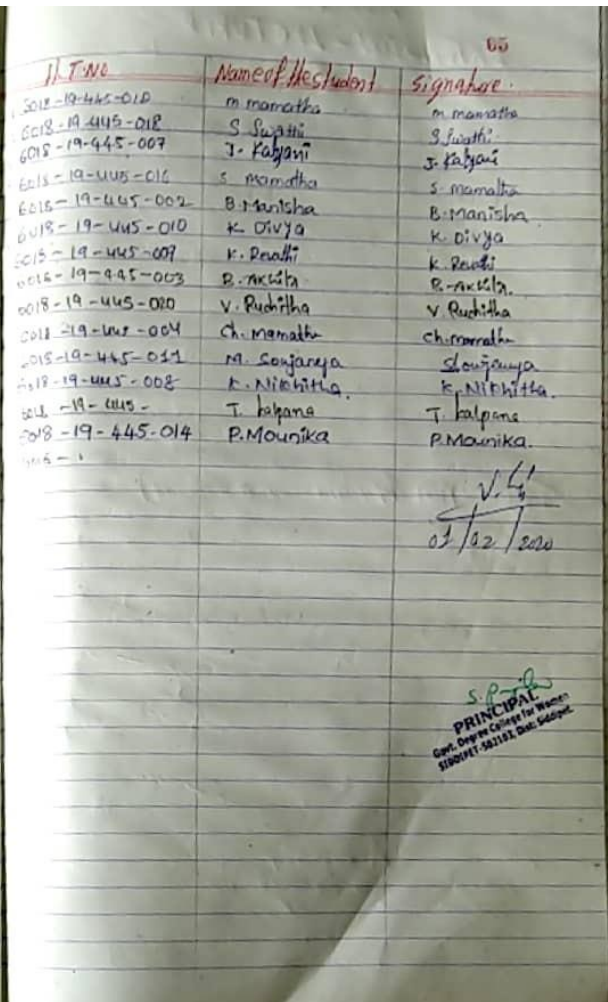 65
H.T.NO Name of the student Signature.
6018-19-445-010 m mamatha m mamatha
6018-19-445-018 S Swathi S Swathi
6018-19-445-007 J. Kalyani J. Kalyani
6018-19-445-016 S mamatha S. mamatha
6018-19-445-002 B. Manisha B. Manisha
6018-19-445-010 K Divya K. Divya
6018-19-445-009 K. Revathi K. Revathi
6018-19-445-003 B. Akhila B. Akhila.
6018-19-445-020 V. Ruchitha V Ruchitha
6018-19-445-004 Ch. Mamatha Ch. mamatha
6018-19-445-011 M. Soujanya Soujanya
6018-19-445-008 K. Nikhitha. K. Nikhitha.
-19-445- T. kalpana T. kalpana
6018-19-445-014 P. Mounika P. Mounika.
01/02/2020
PRINCIPAL
Govt. Degree College for Women
SIDDIPET-502103, Dist: Siddipet.